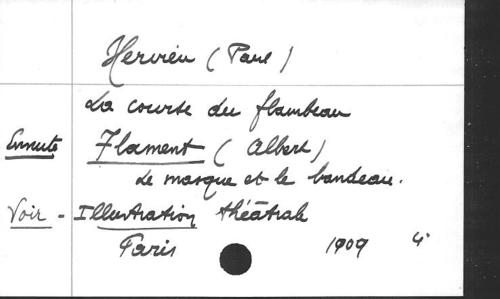 Hervieu (Paul)
La course du flambeau
Ensuite Flament (Albert)
Le masque et le bandeau.
Voir - Illustration théâtrale
Paris 1909 4°